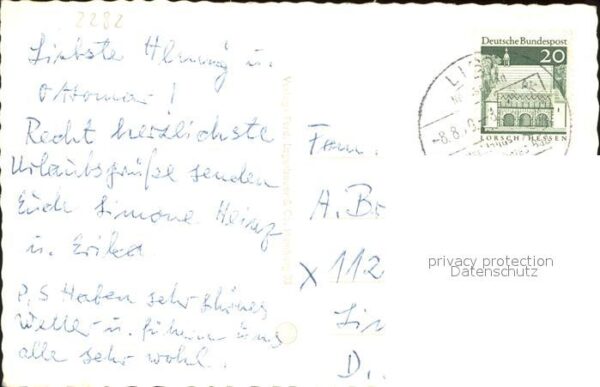 2282
Liebste u.
Ottomar!
Recht herzlichste
Urlaubsgrüße senden
Euch Simone Heinz
u. Erika
P.S Haben sehr schönes
Wetter u. fühlen uns
alle sehr wohl.
Deutsche Bundespost
20
LORSCH/HESSEN
Fam.
A. Br
X 112
D.
privacy protection
Datenschutz